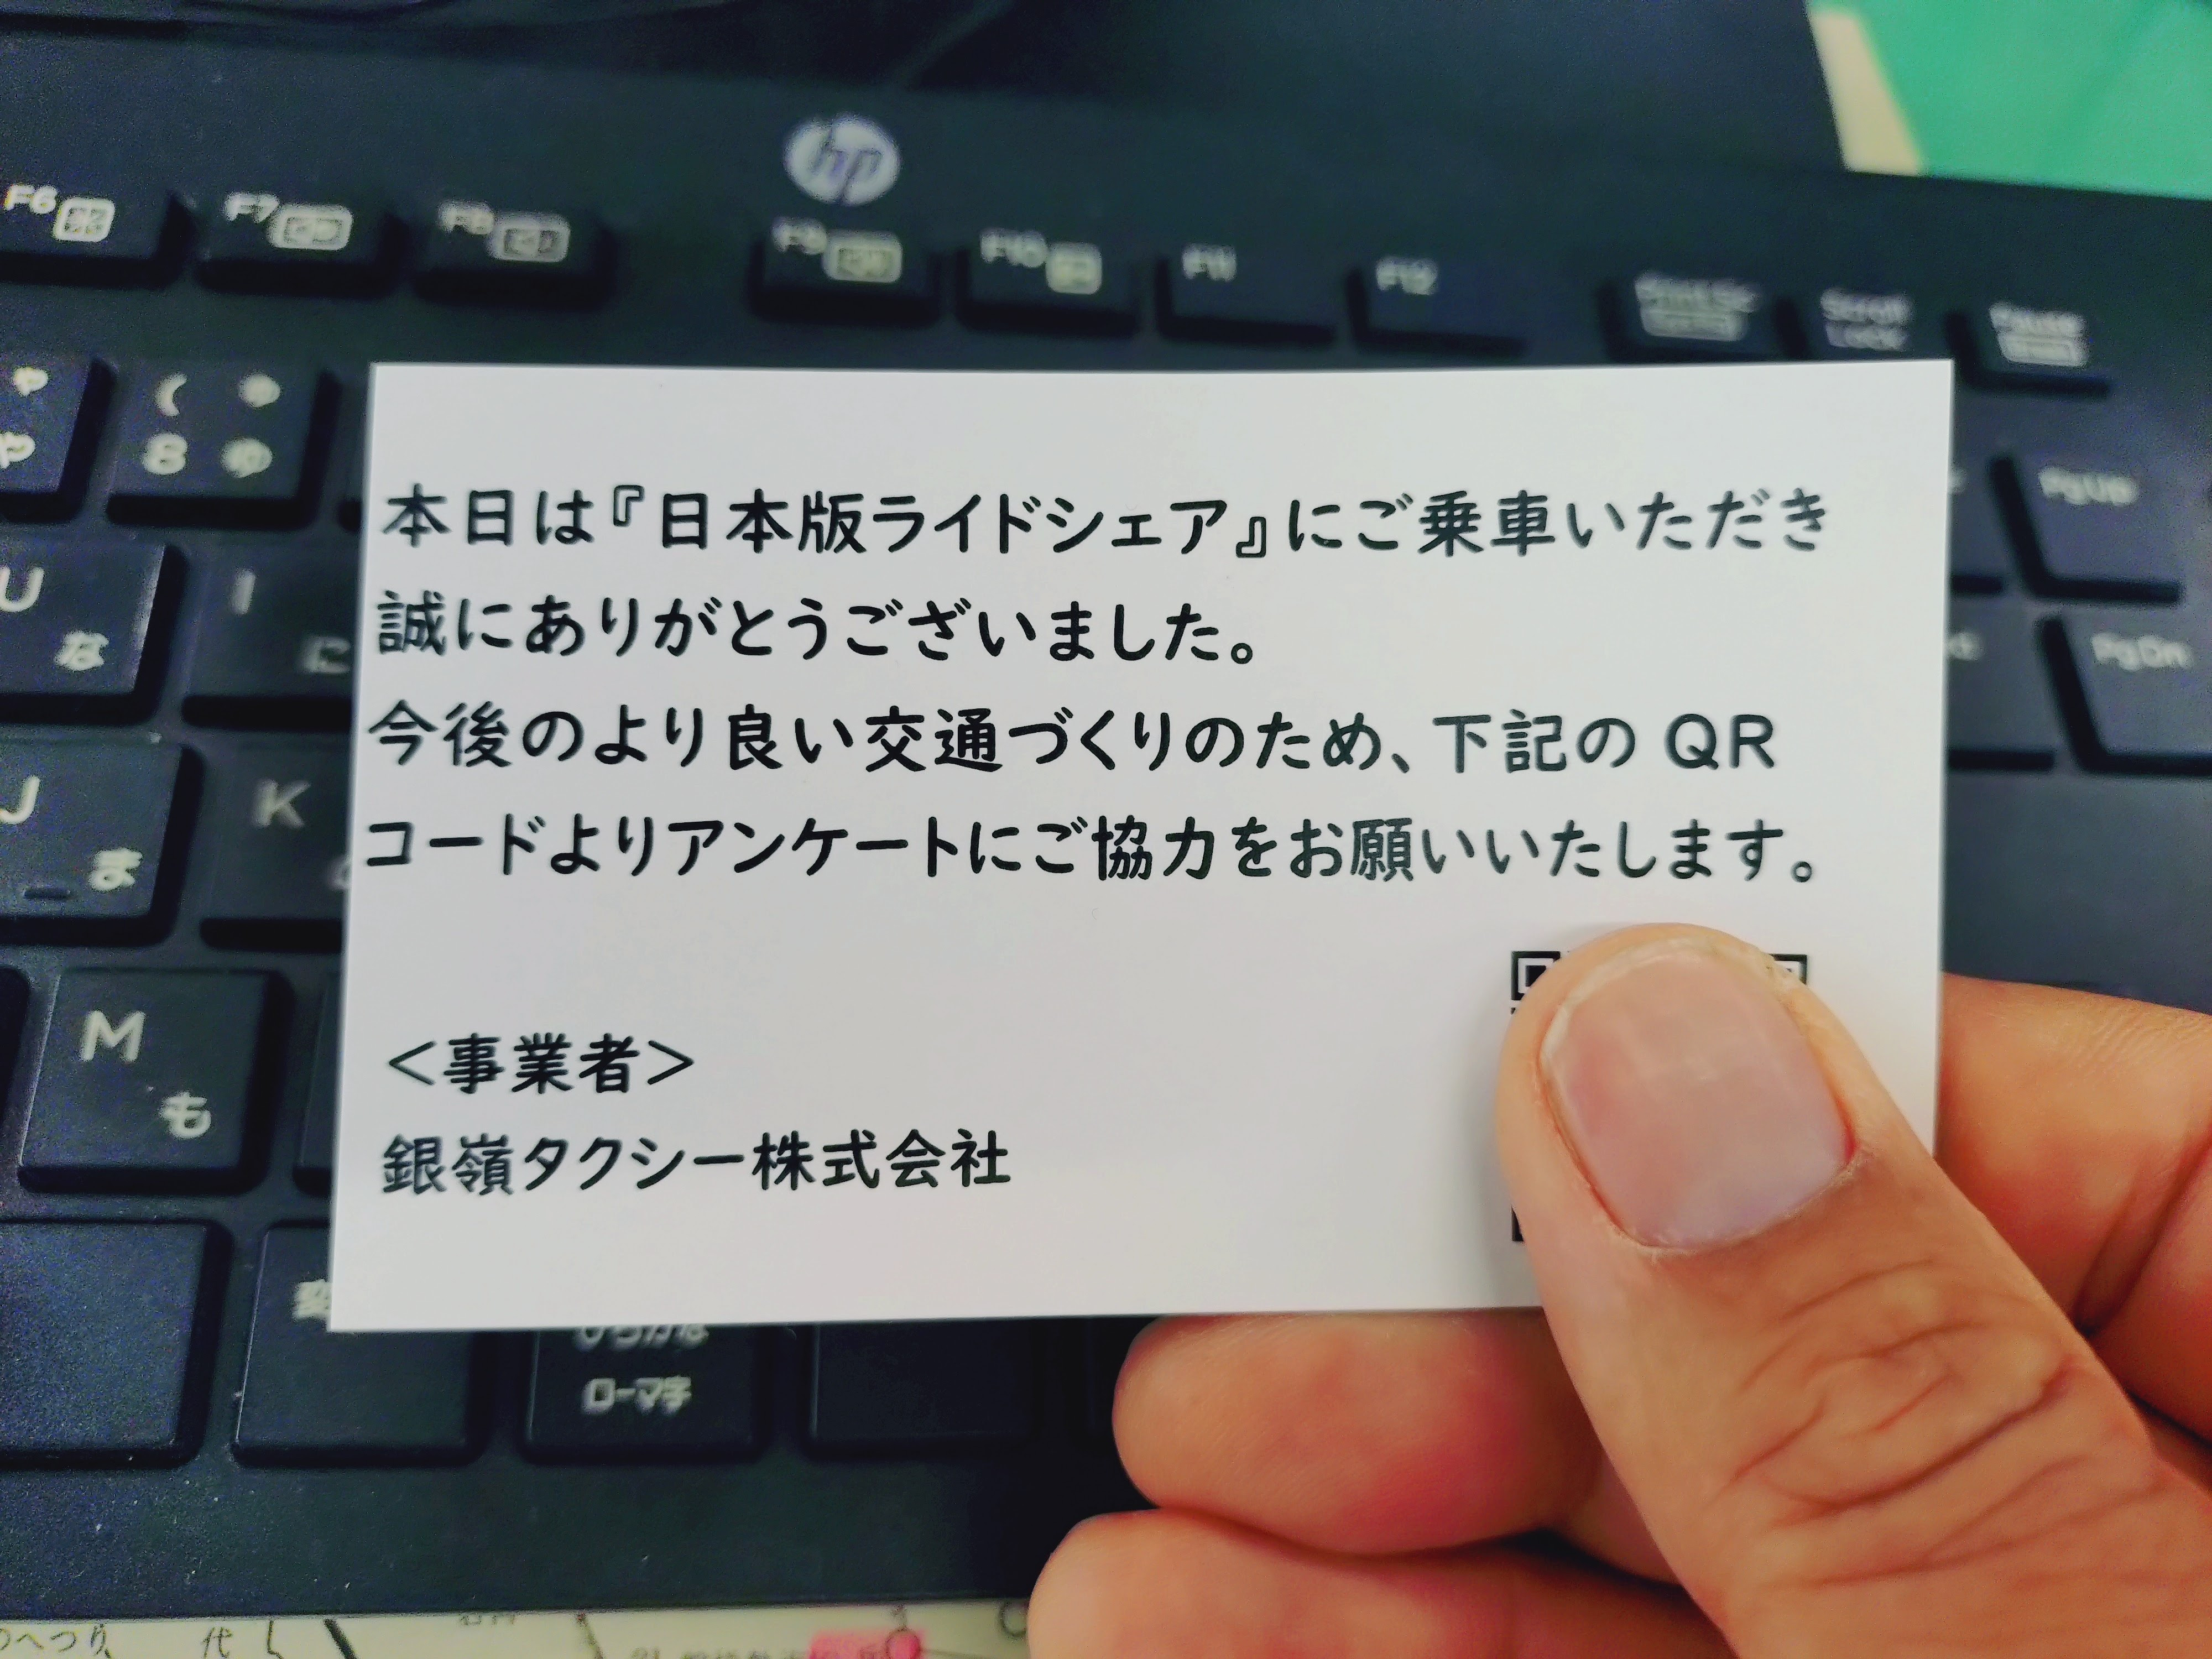 hp
F6
F7
F8
F9
F10
F11
F12
Scroll
Lock
Pause
( ゅ
8 ゆ
や
PgUp
U
な
I
に
PgDn
J
ま
K
M
も
本日は『日本版ライドシェア』にご乗車いただき
誠にありがとうございました。
今後のより良い交通づくりのため、下記の QR
コードよりアンケートにご協力をお願いいたします。
<事業者>
銀嶺タクシー株式会社
ひらがな
ローマ字
へつり
代